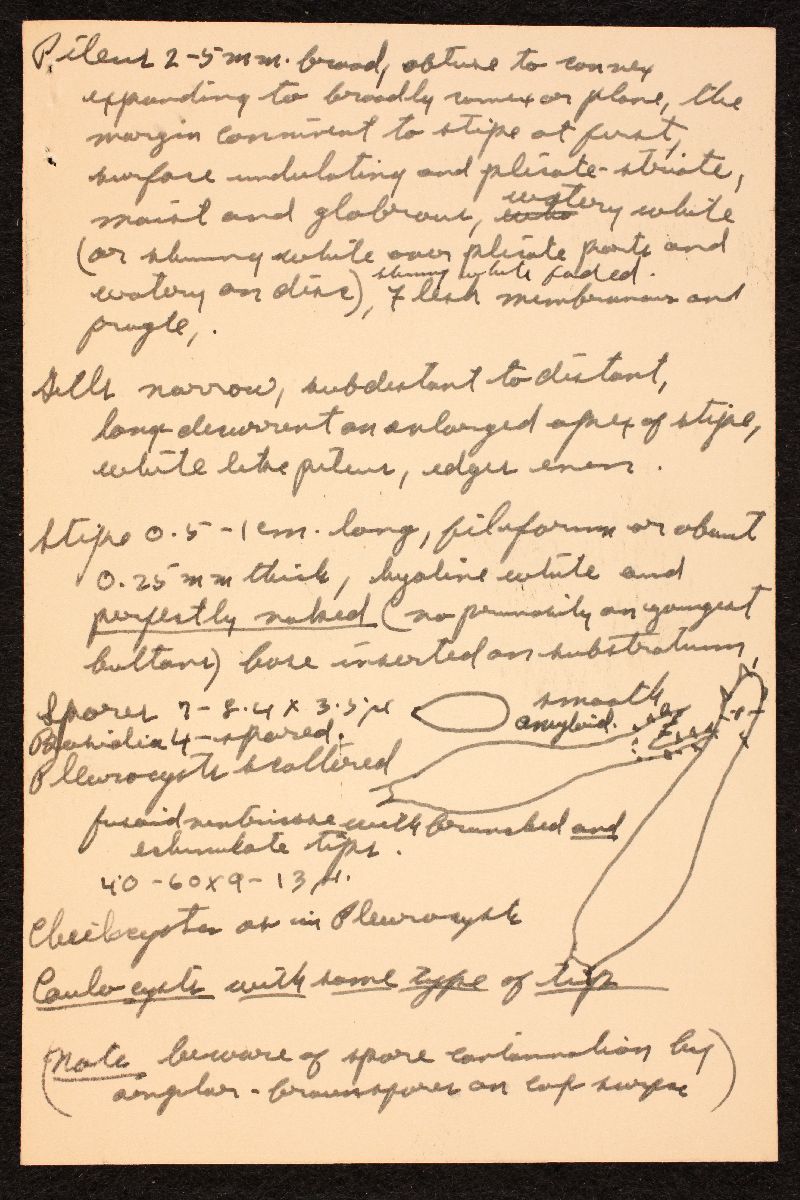 Pileus 2-5 mm. broad, obtuse to convex
expanding to broadly convex or plane, the
margin connivent to stipe at first,
surface undulating and plicate-striate,
moist and glabrous, watery white
(or shinny white over plicate parts and
watery on disc), shinny white faded.
Flesh membranous and
fragile,.
Gills narrow, subdistant to distant,
long-decurrent on enlarged apex of stipe,
white like pileus, edges even.
Stipe 0.5-1 cm. long, filiform or about
0.25 mm thick, hyaline white and
perfectly naked (no pruinosity on youngest
buttons) base inserted on substratum,
Spores 7-8.4 x 3.5 µ smooth
amyloid.
Basidia 4-spored.
Pleurocysts scattered
fusoid ventricose with branched and
echinulate tips.
40-60x9-13 µ.
Cheilocysts as in Pleurocysts
Caulocysts with same type of tip
(Note beware of spore contamination by
angular-brown spores on cap surface)